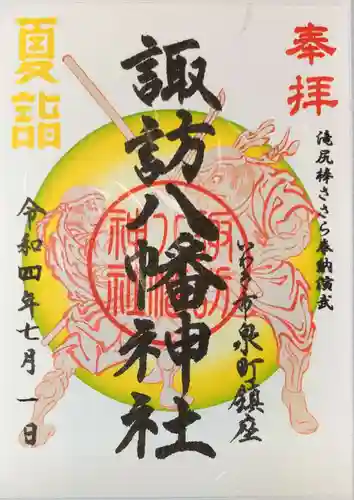 奉拝
滝尻棒ささら奉納演武
いわき市泉町鎮座
諏訪八幡神社
夏詣
令和四年七月一日